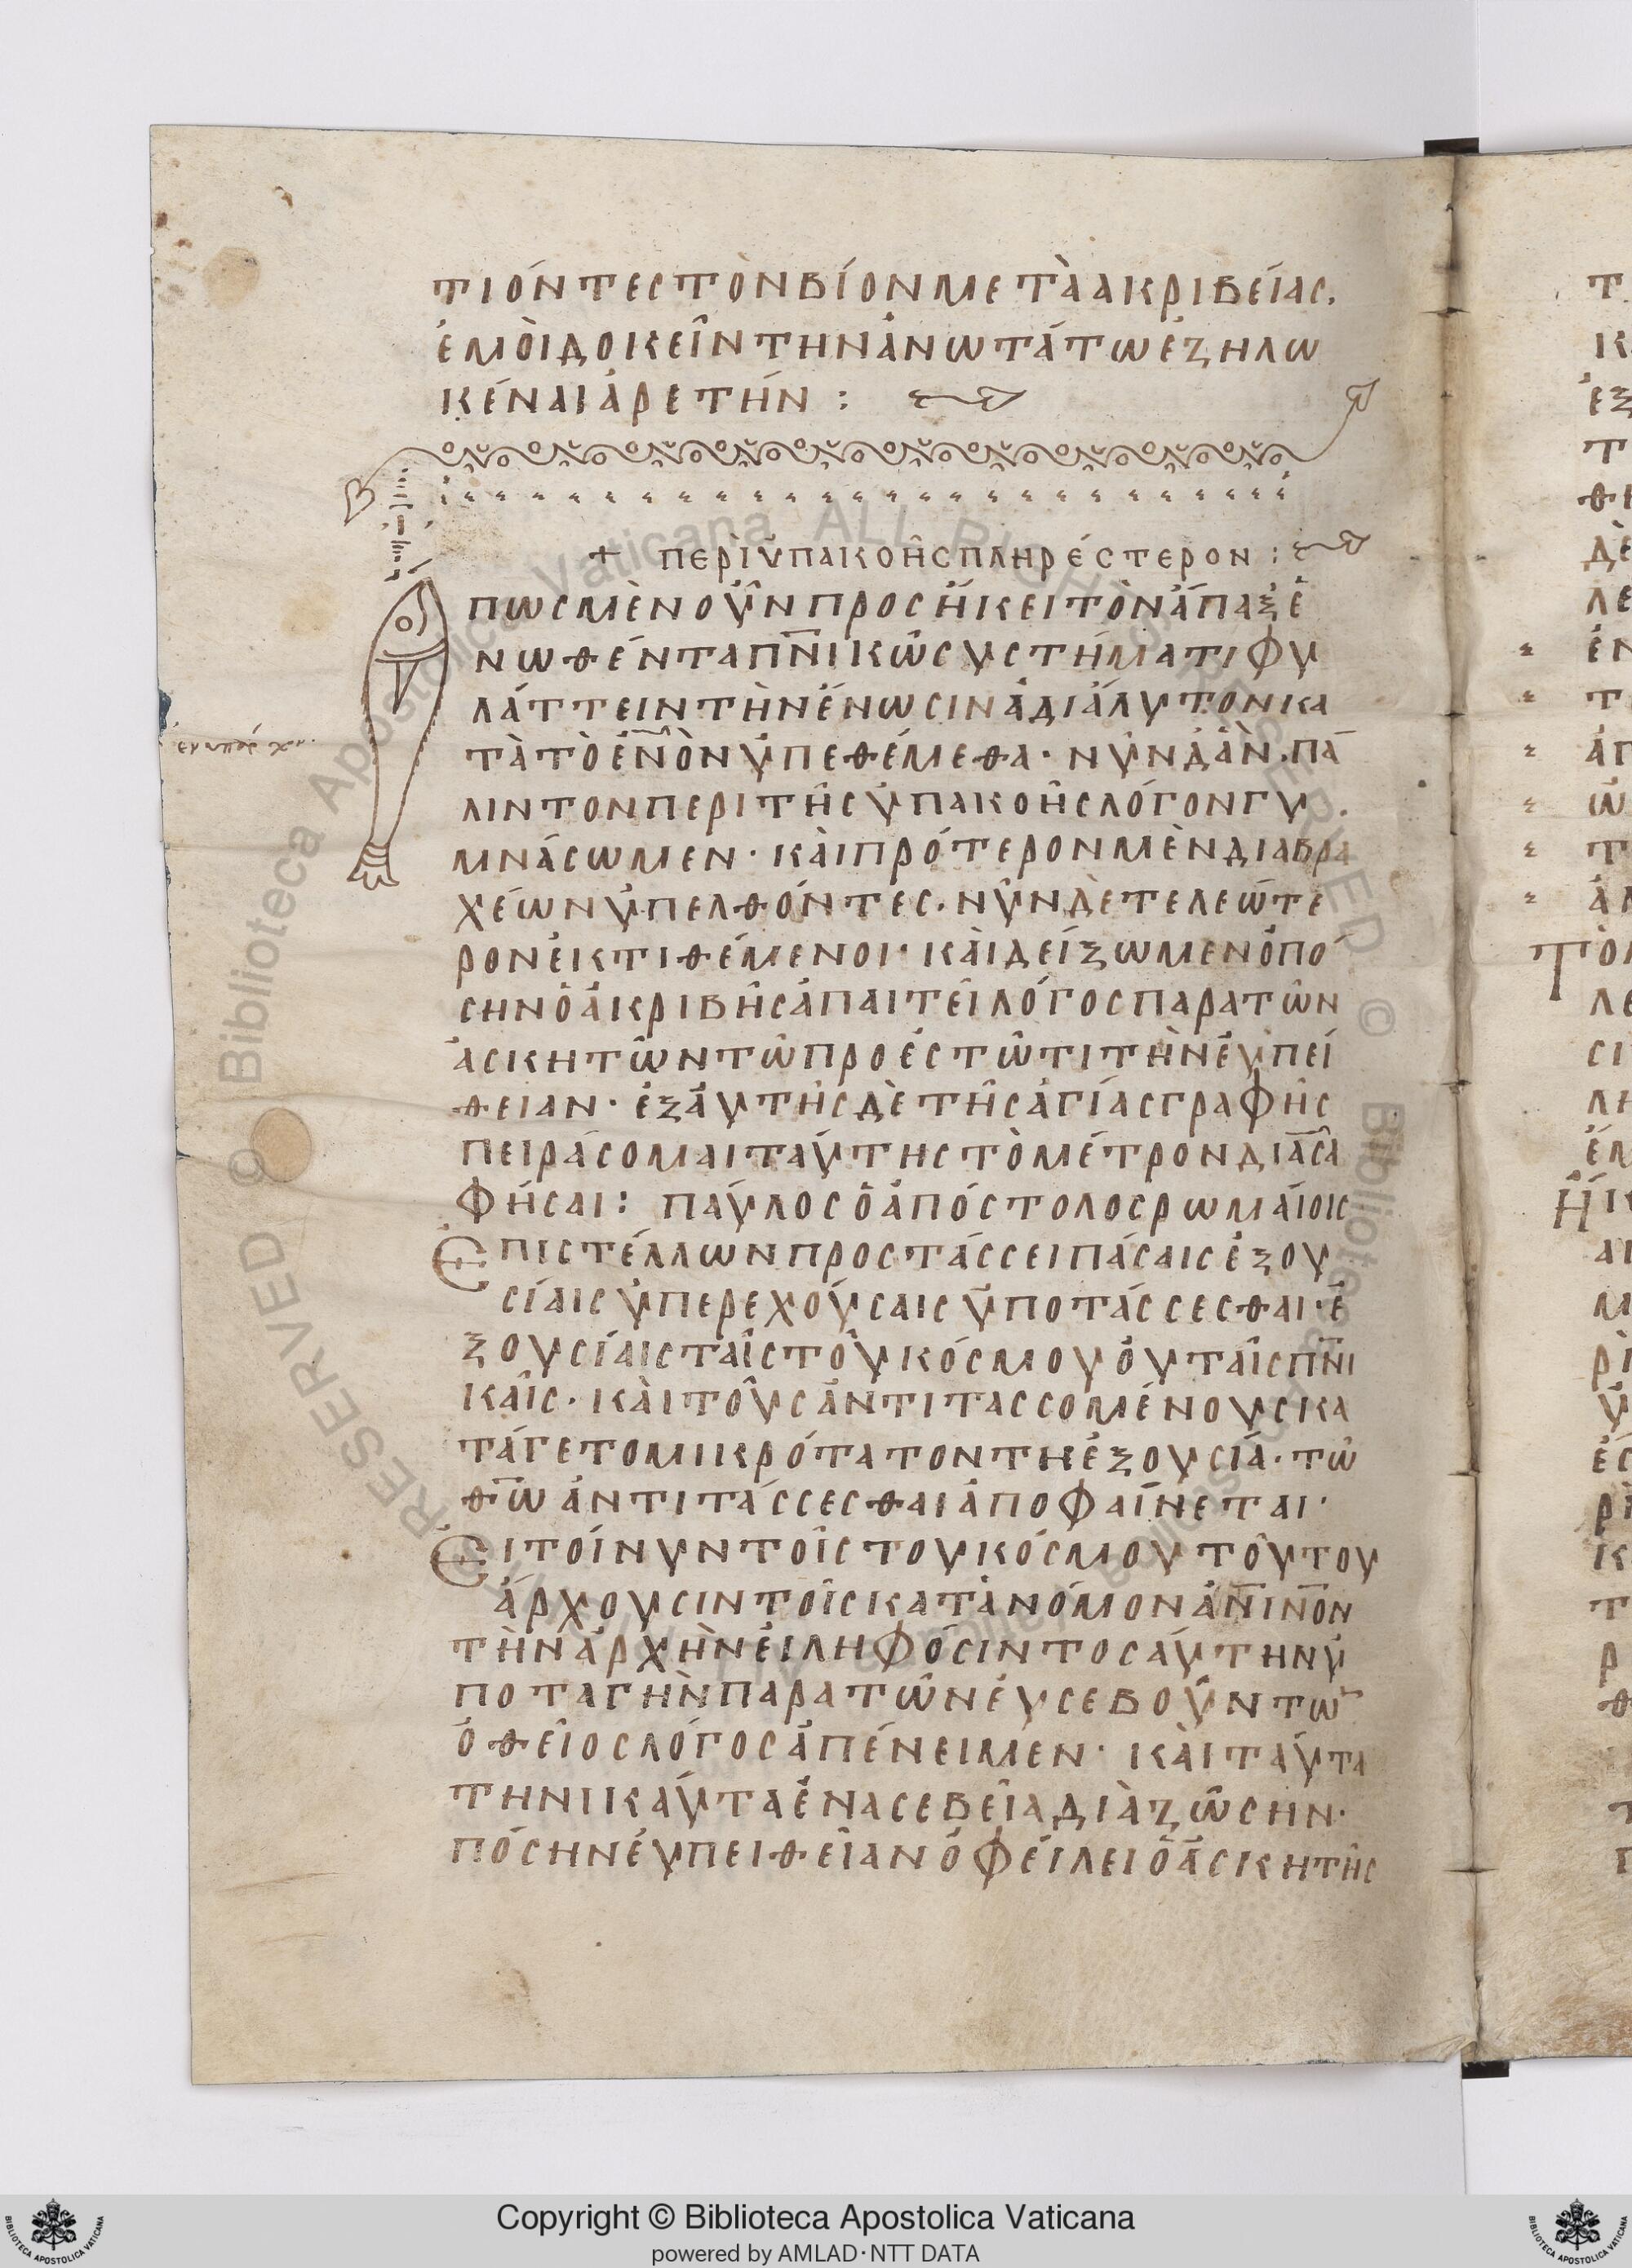 τιόντες τὸν βίον μετὰ ἀκριβείας.
ἐμοὶ δοκεῖν τὴν ἀνωτάτω ἐζηλω
κέναι ἀρετήν :
+ περὶ ὑπακοῆς πληρέστερον :
πως μὲν οὖν προσήκει τὸν ἅπαξ ἑ
νωθέντα π̅ν̅ικῶ συστήματι φυ
λάττειν τὴν ἕνωσιν ἀδιάλυτον κα
τὰ τὸ ἐνὸν ὑπεθέμεθα · νῦν δ' ἂν πά
λιν τον περι τῆς ὑπακοῆς λόγον γυ
μνάσωμεν · καὶ πρότερον μὲν δια βρα
χέων ὑπελθόντες · νῦν δὲ τελεώτε
ρον ἐκτιθέμενοι · καὶ δείξωμεν ὁπό
σην ὁ ἀκριβὴς ἀπαιτεῖ λόγος παρα τῶν
ἀσκητῶν τῶ προεστῶτι τὴν εὐπεί
θειαν · ἐξ αὐτῆς δὲ τῆς ἁγίας γραφῆς
πειράσομαι ταύτης τὸ μέτρον διασα
φῆσαι : παύλος ὁ ἀπόστολος ρωμαίοις
Ἐπιστέλλων προστάσσει πάσαις ἐξου
σίαις ὑπερεχούσαις ὑποτάσσεσθαι · ἐ
ξουσίαις ταῖς τοῦ κόσμου οὐ ταῖς π̅ν̅ι
καῖς · καὶ τοὺς ἀντιτασσομένους κα
τά γε το μικρότατον τη ἐξουσία · τῶ
θ̅ω̅ ἀντιτάσσεσθαι ἀποφαίνεται ·
Εἰ τοίνυν τοῖς του κόσμου τούτου
ἄρχουσιν τοῖς κατὰ νόμον α̅ν̅ι̅ν̅ο̅ν
τὴν ἀρχὴν εἰληφόσιν τοσαύτην ὑ
ποταγὴν παρα τῶν εὐσεβούντω̅
ὁ θεῖος λόγος ἀπένειμεν · καὶ ταύτα
τηνικαύτα ἐν ασεβεία διὰ ζώσην ·
πόσην εὐπειθείαν ὀφείλει ὁ ἀσκητὴς
Copyright © Biblioteca Apostolica Vaticana
powered by AMLAD·NTT DATA